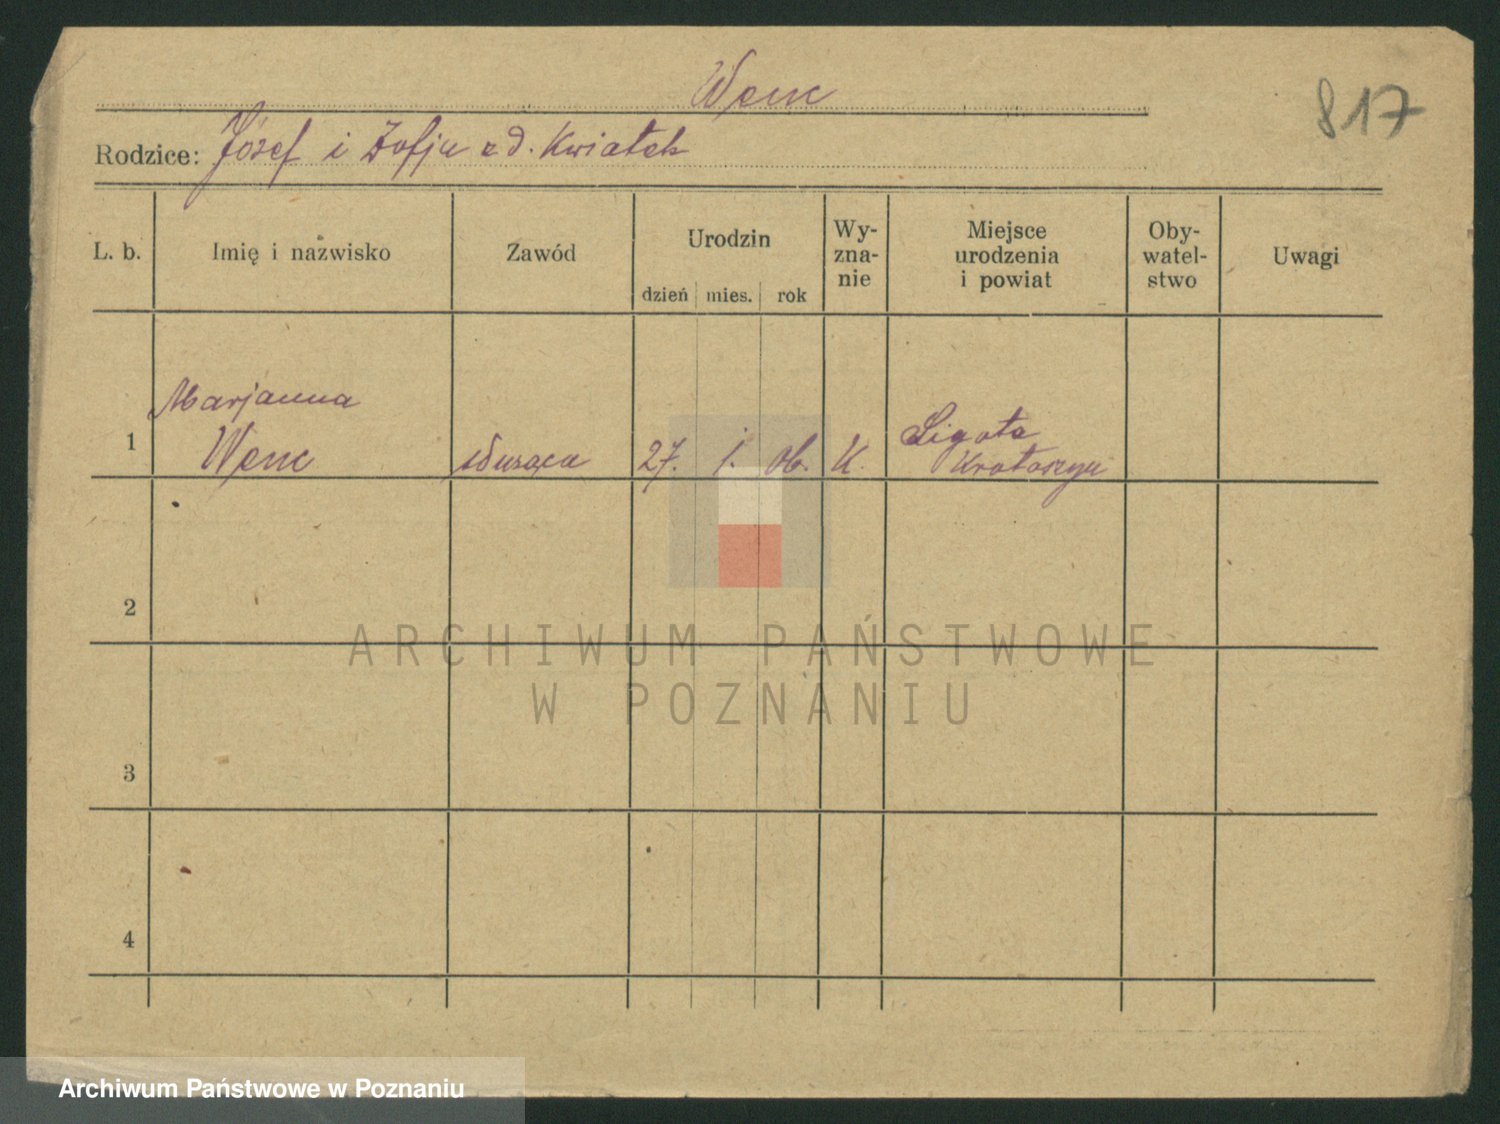 Wenc
817
Rodzice: Józef i Zofja z d. Kwiatek
L. b.
Imię i nazwisko
Zawód
Urodzin
dzień mies. rok
Wy-
zna-
nie
Miejsce
urodzenia
i powiat
Oby-
watel-
stwo
Uwagi
1
Marjanna
Wenc
służąca
27. 1. 06. K.
Ligota
Krotoszyn
2
3
4
ARCHIWUM PAŃSTWOWE
W POZNANIU
Archiwum Państwowe w Poznaniu